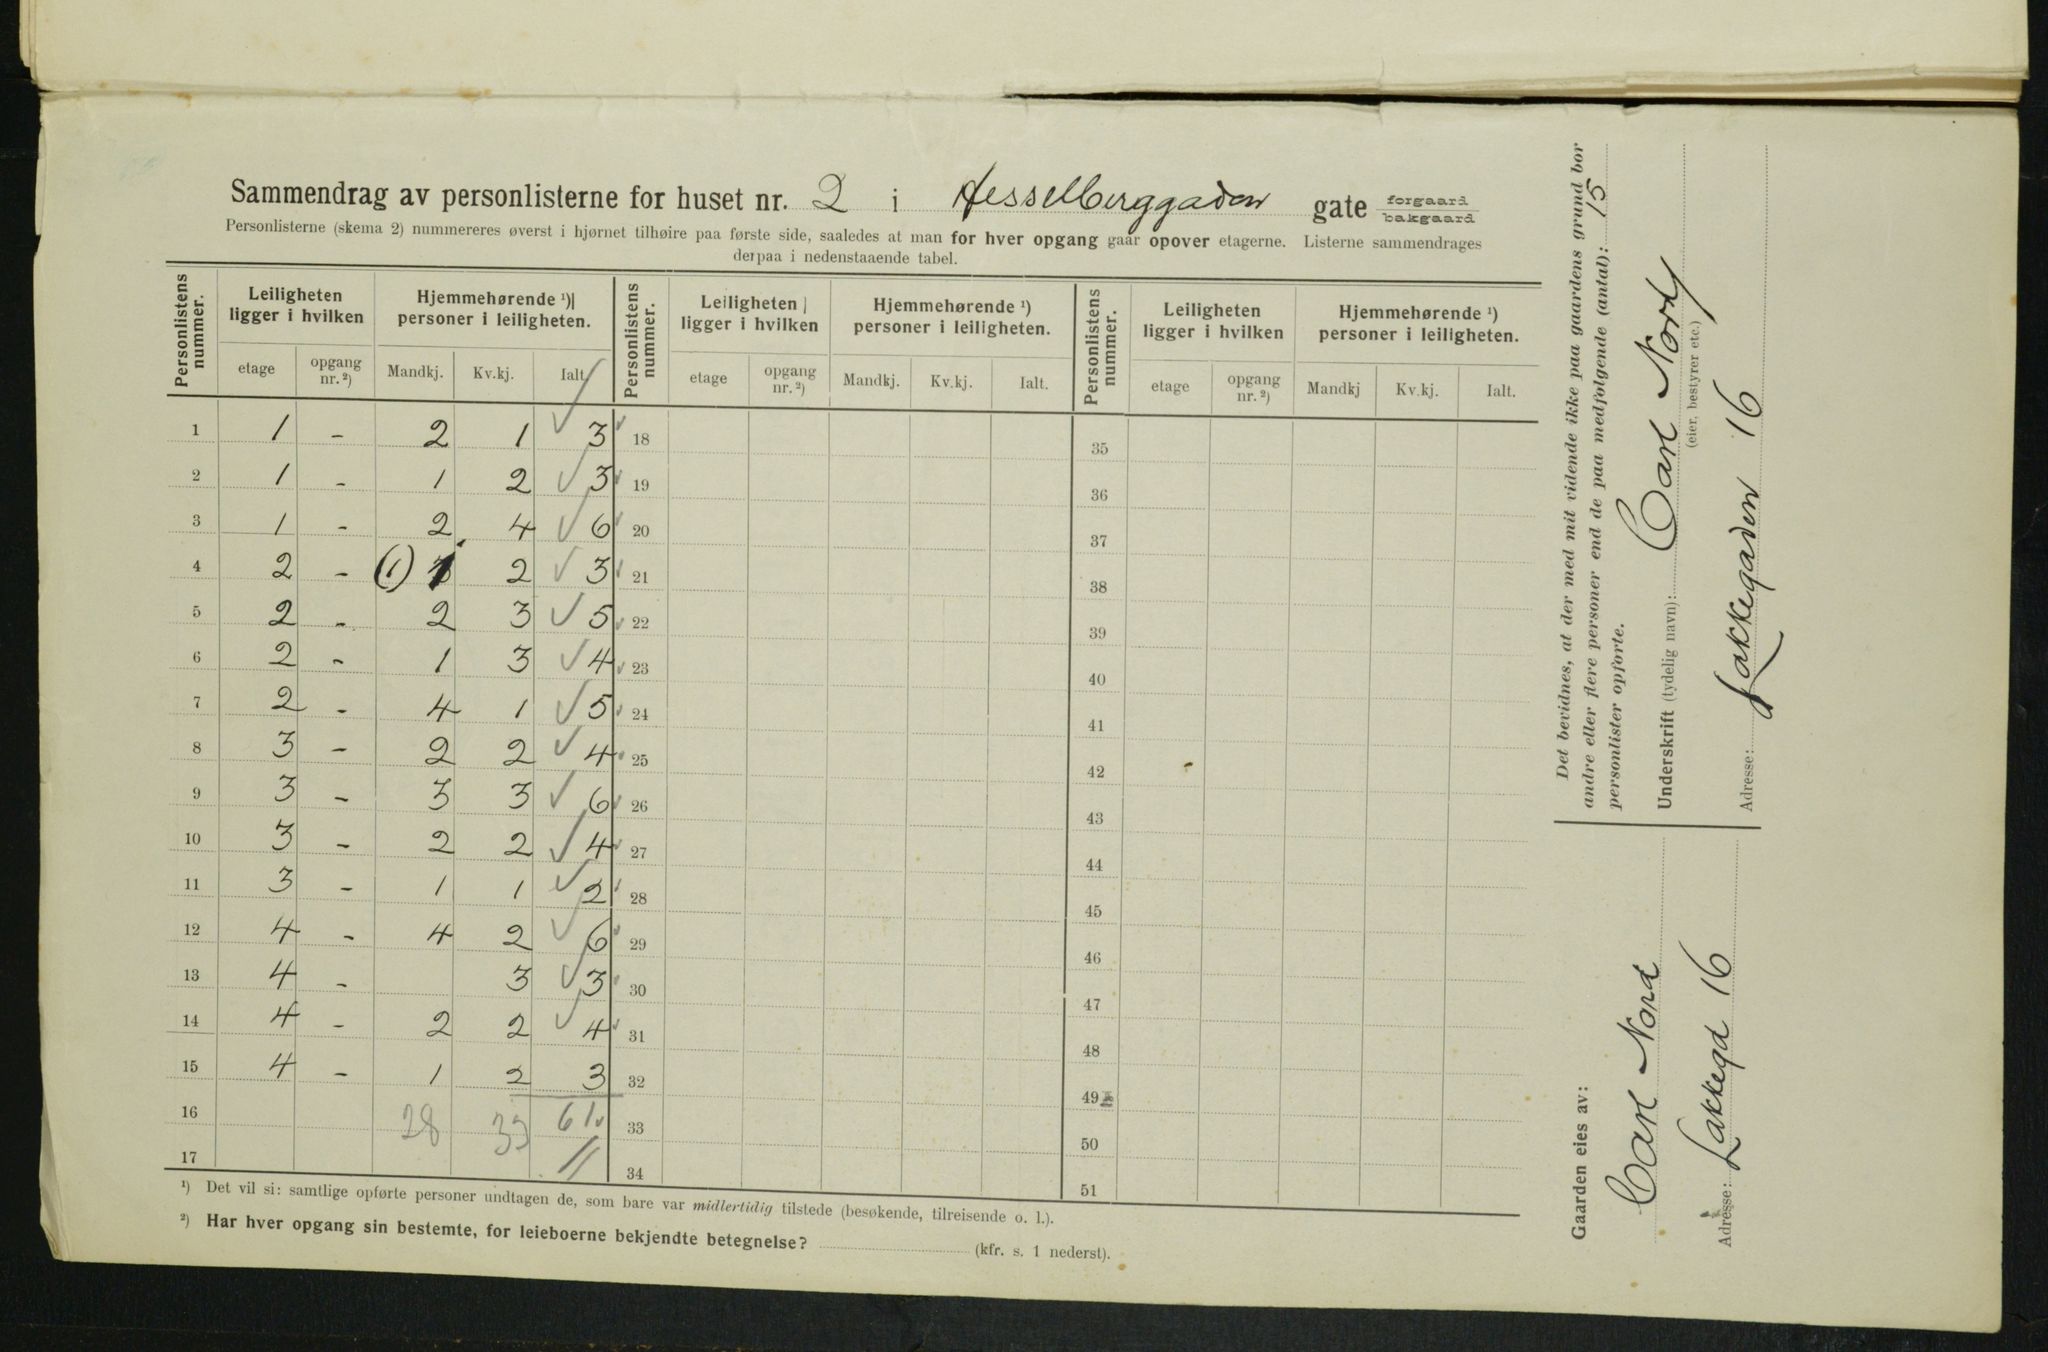 Sammendrag av personlisterne for huset nr. 2 i Hesselberggaden gate forgaard bakgaard
Personlisterne (skema 2) nummereres øverst i hjørnet tilhøire paa første side, saaledes at man for hver opgang gaar opover etagerne. Listerne sammendrages
derpaa i nedenstaaende tabel.
Personlistens nummer. Leiligheten ligger i hvilken Hjemmehørende ¹) personer i leiligheten. Personlistens nummer. Leiligheten ligger i hvilken Hjemmehørende ¹) personer i leiligheten. Personlistens nummer. Leiligheten ligger i hvilken Hjemmehørende ¹) personer i leiligheten.
etage opgang nr.²) Mandkj. Kv.kj. Ialt. etage opgang nr.²) Mandkj. Kv.kj. Ialt. etage opgang nr.²) Mandkj Kv.kj. Ialt.
1 1 - 2 1 ✓ 3 18 35
2 1 - 1 2 ✓ 3 19 36
3 1 - 2 4 ✓ 6 20 37
4 2 - (1) 1 2 ✓ 3 21 38
5 2 - 2 3 ✓ 5 22 39
6 2 - 1 3 ✓ 4 23 40
7 2 - 4 1 ✓ 5 24 41
8 3 - 2 2 ✓ 4 25 42
9 3 - 3 3 ✓ 6 26 43
10 3 - 2 2 ✓ 4 27 44
11 3 - 1 1 ✓ 2 28 45
12 4 - 4 2 ✓ 6 29 46
13 4 - 3 ✓ 3 30 47
14 4 - 2 2 ✓ 4 31 48
15 4 - 1 2 3 32 49
16 28 33 61 33 50
17 34 51
¹) Det vil si: samtlige opførte personer undtagen de, som bare var midlertidig tilstede (besøkende, tilreisende o. l.).
²) Har hver opgang sin bestemte, for leieboerne bekjendte betegnelse? (kfr. s. 1 nederst).
Det bevidnes, at der med mit vidende ikke paa gaardens grund bor
andre eller flere personer end de paa medfølgende (antal): 15
personlister opførte.
Underskrift (tydelig navn): Carl Nord
(eier, bestyrer etc.)
Adresse: Lakkegaden 16
Gaarden eies av:
Carl Nord
Adresse: Lakkegd 16